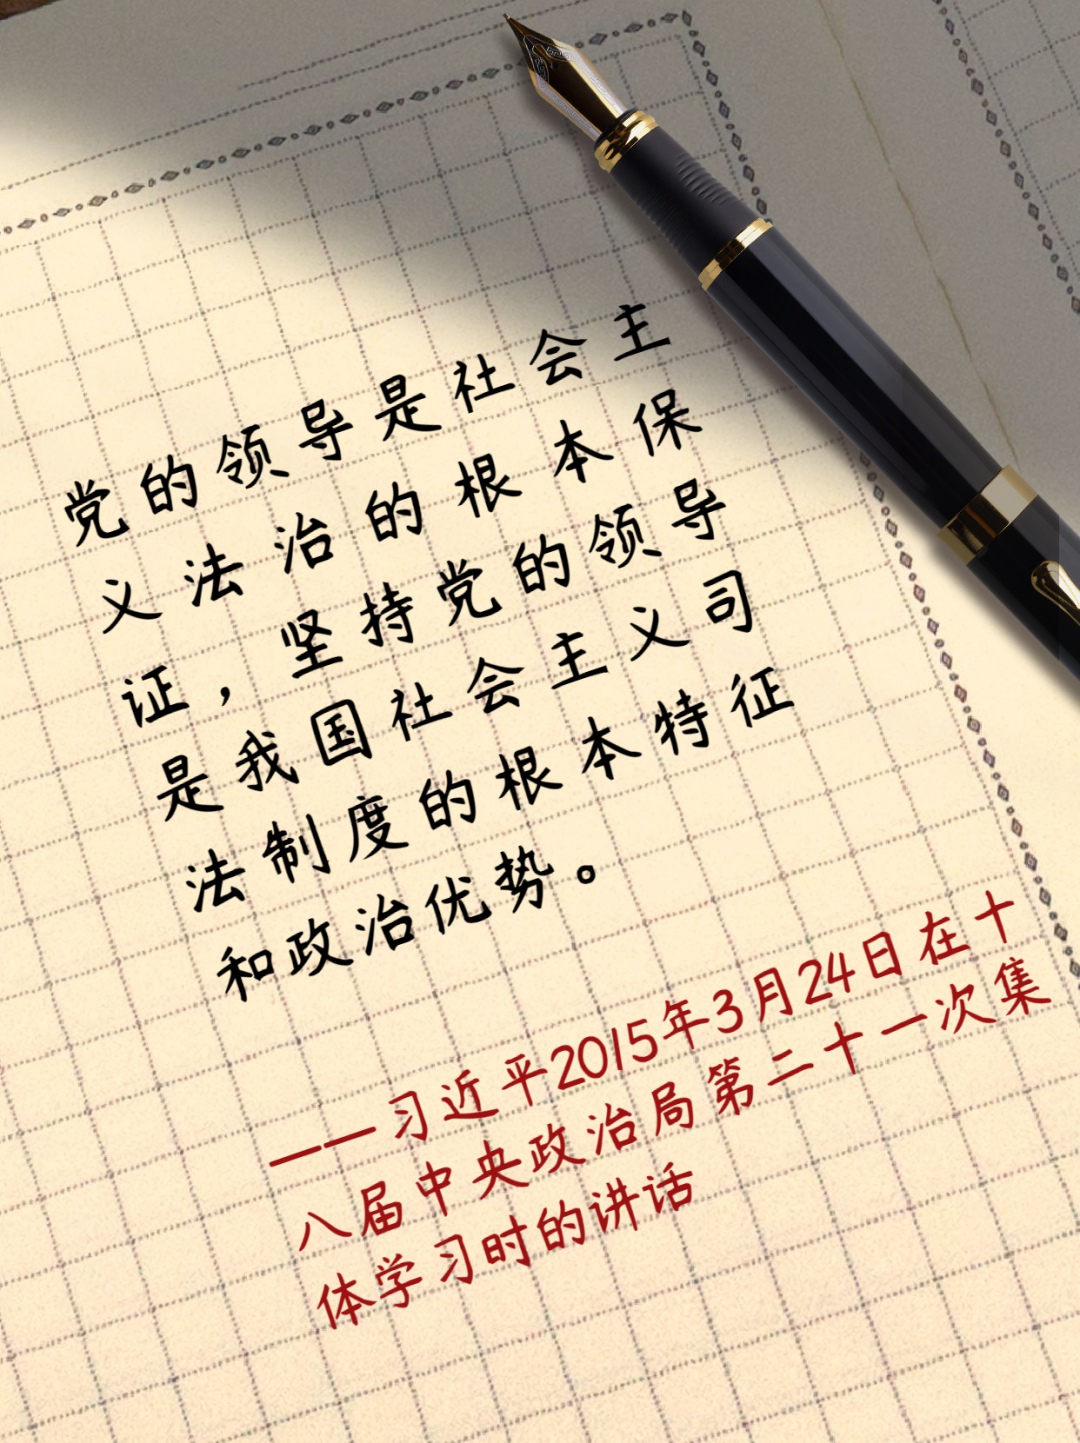 党的领导是社会主
义法治的根本保
证，坚持党的领导
是我国社会主义司
法制度的根本特征
和政治优势。
——习近平2015年3月24日在十
八届中央政治局第二十一次集
体学习时的讲话